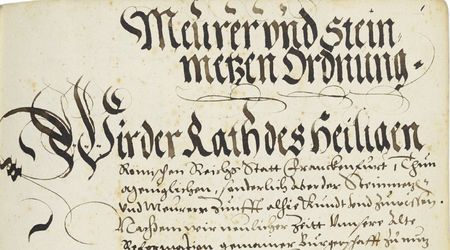 Meurer vnd Stein-
metzen Ordnung.
Wir der Rath des Heiligen
Römschen Reichs Statt Franckenfurt Thun
sonderlich aber der Steinmetzen
vnd Meurer Zunfft alhie Kundt vnd zuwissen.
Nachdem wir neulicher Zeitt Vnsere Alte
Reformation gemainer Burgerschafft zu nutz